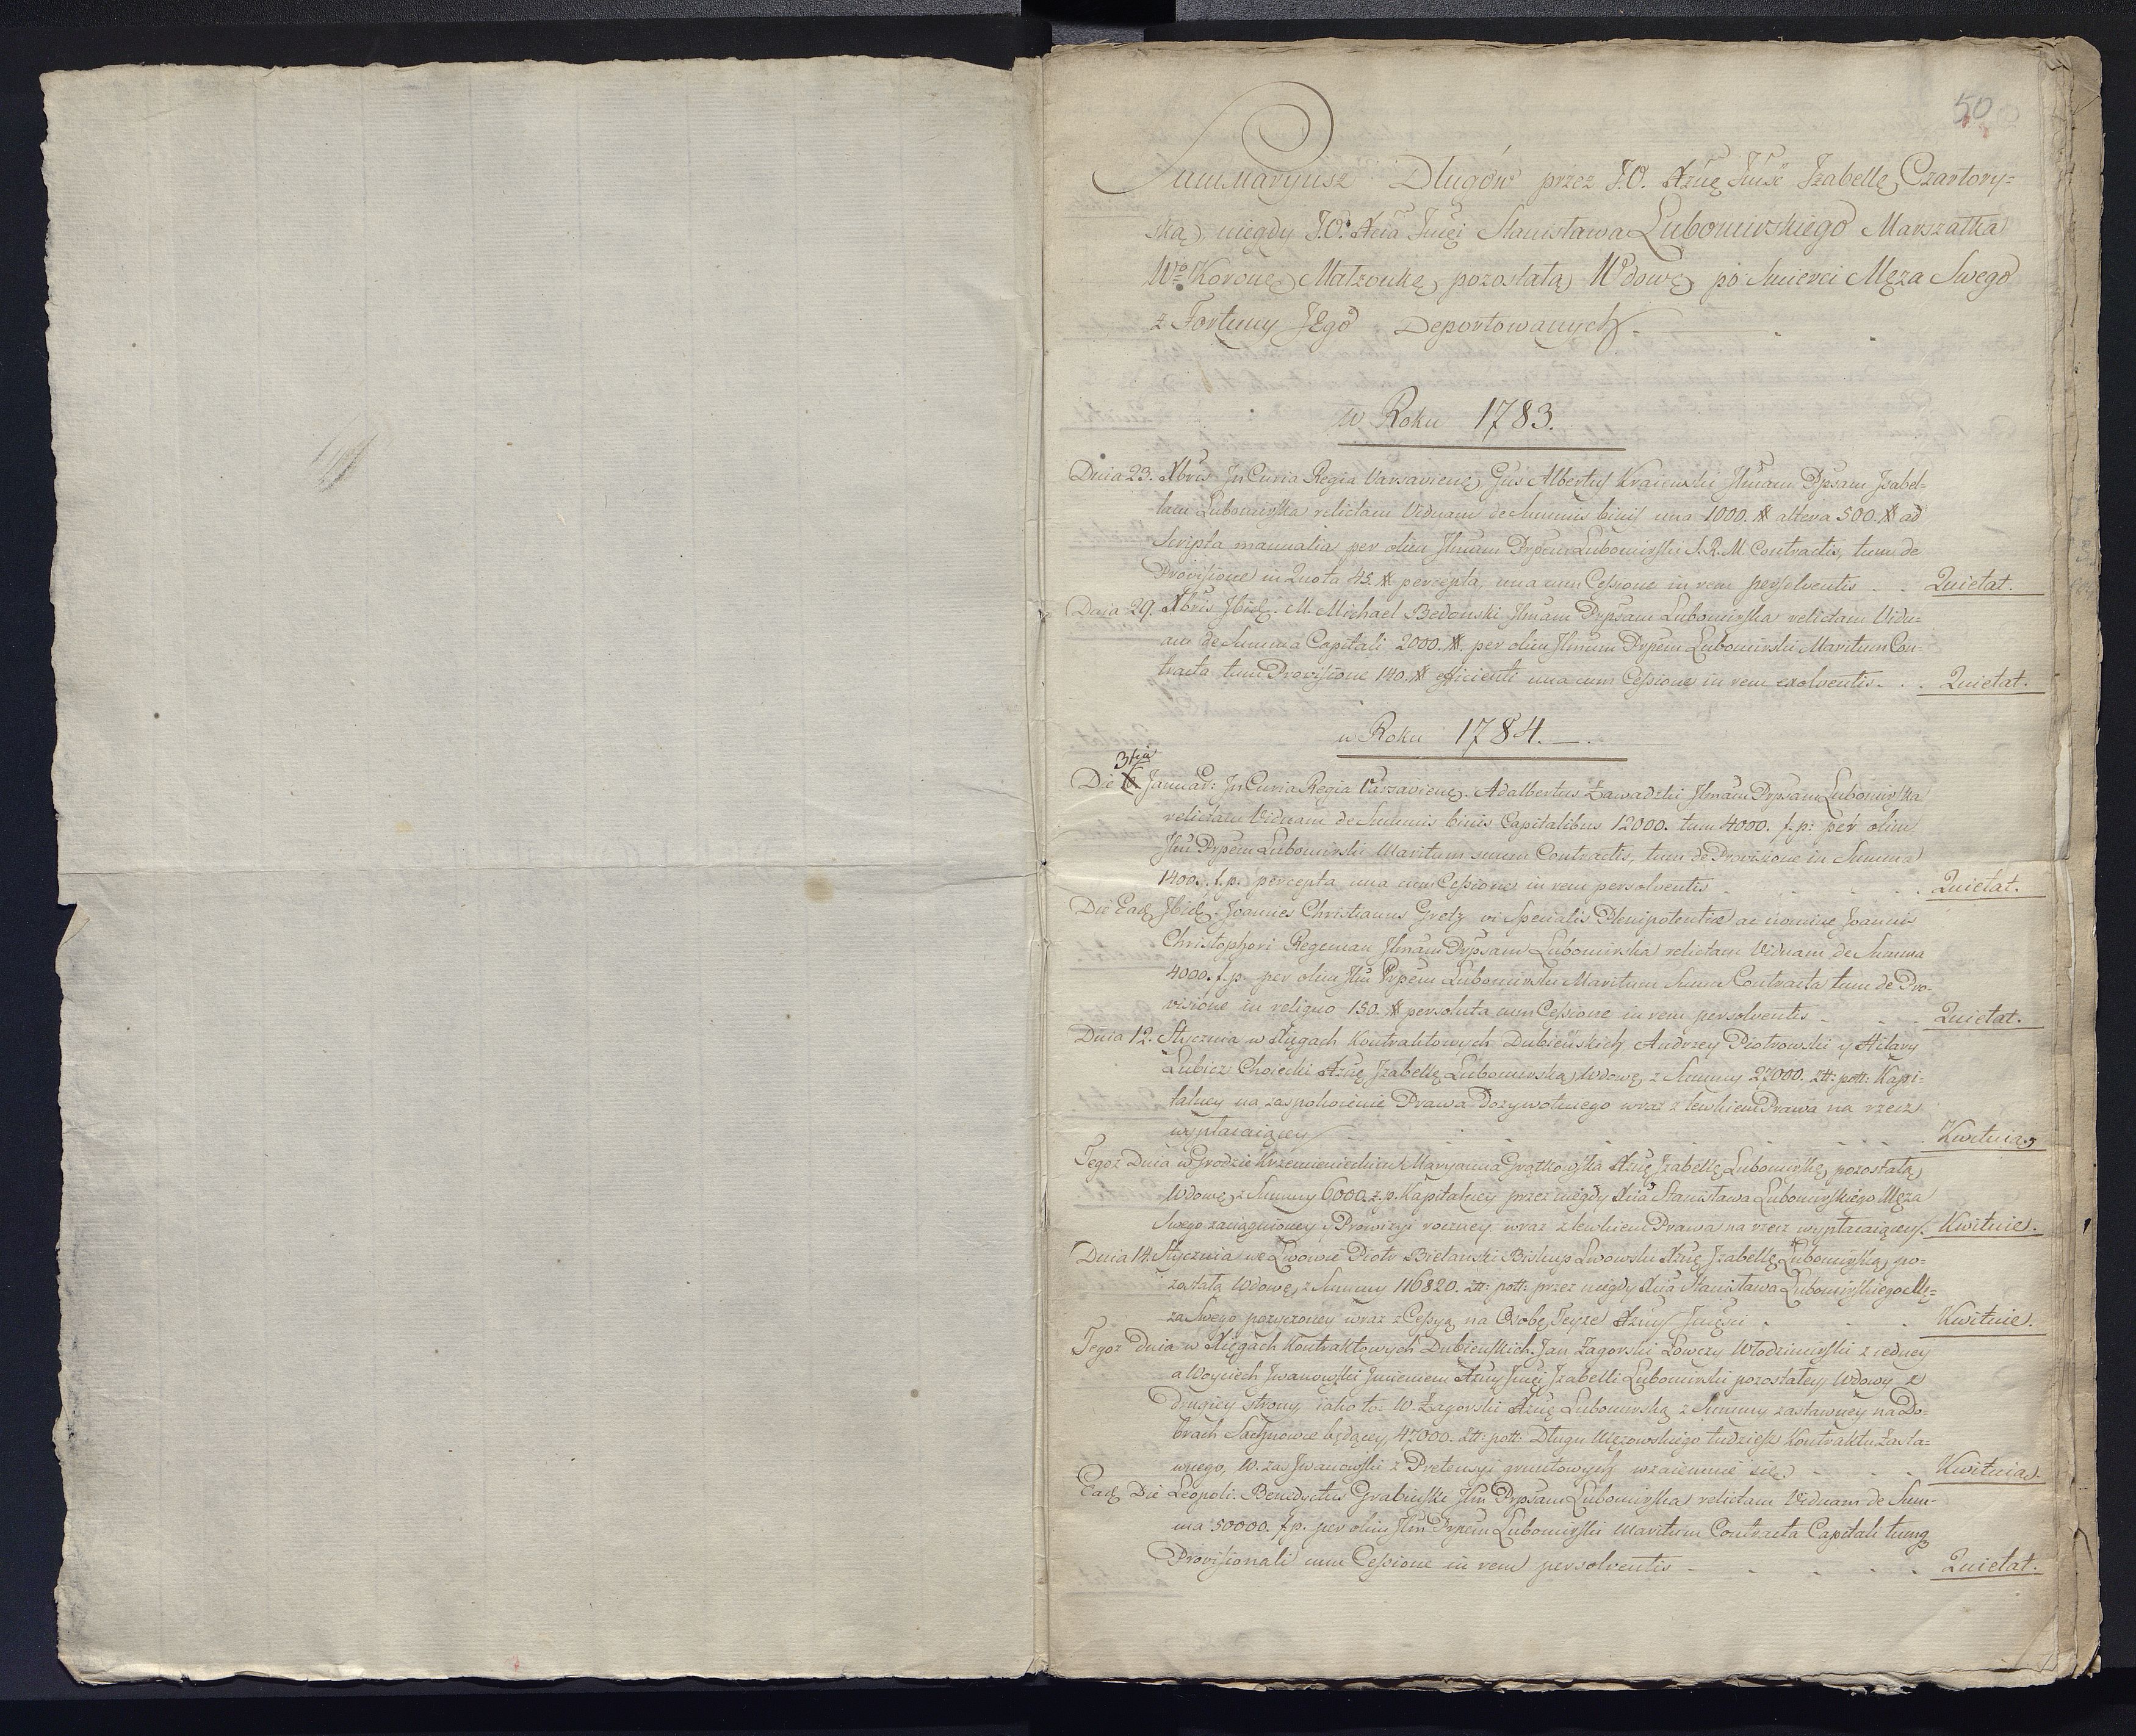 50
Summaryusz Długów przez J.O. Xznę Jmść Izabellę Czartory=
ską, niegdy J.O. Xcia Jmci Stanisława Lubomirskiego Marszałka
W° Koronę Małżonkę, pozostałą Wdowę po Smierci Męza Swego
z Fortuny Jego Deportowanych.
w Roku 1783.
Dnia 23. Xbris In Curia Regia Varsavienę Gus Albertus Kraiewski Illmam Ppsam Isabel=
lam Lubomirska relictam Viduam de Summis binis una 1000. # altera 500. # ad
Scripta manualia per olim Illmum Prpem Lubomirski S.R.M. Contractis, tum de
Provisione in Quota 45. # percepta, una cum Cessione in rem persolventis . . Quietat.
Dnia 29. Xbris Ibid. M. Michael Bedonski Illmam Prpsam Lubomirska relictam Vidu=
am de Summa Capitali 2000. #. per olim Illmum Prpem Lubomirski Maritum Con=
tracta tum Provisione 140. # efficienti una cum Cessione in rem exolventis. . . Quietat.
w Roku 1784.
31ma
Die Januar: In Curia Regia Varsavienę. Adalbertus Zawadzki Illmam Prpsam Lubomirska
relictam Viduam de Summis binis Capitalibus 12000. tum 4000. f.p: per olim
Illm Prpem Lubomirski Maritum suum Contractis, tum de Provisione in Summa
1400. f.p. percepta una cum Cessione in rem persolventis . . . . . Quietat.
Die Ead. Ibid. Joannes Christianus Gretz vi Specialis Plenipotentiæ ac nomine Joannis
Christophori Regeman Illmam Prpsam Lubomirska relictam Viduam de Summa
4000. f.p. per olim Illm Prpem Lubomirski Maritum Suum Contracta tum de Pro=
visione in reliquo 150. # persoluta cum Cessione in rem persolventis . . . Quietat.
Dnia 12. Stycznia w Xięgach Kontraktowych Dubieńskich Andrzey Piotrowski y Hilary
Lubicz Choiecki Xznę Izabellę Lubomirską Wdowę, z Summy 27000. złł: poll: Kapi=
talney na zaspokoienie Prawa Dozywotniego wraz z lewkiem Prawa na rzecz
wypłacaiącey . . . . . . . . . Kwituią.
Tegoz Dnia w Grodzie Krzemienieckim Maryanna Grątkowska Xznę Izabellę Lubomirską, pozostałą
Wdowę, z Summy 6000. z.p. Kapitalney przez niegdy Xcia Stanisława Lubomirskiego Męza
Swego zaciągnioney y Prowizyi roczney wraz z lewkiem Prawa na rzecz wypłacaiącey. Kwituie.
Dnia 14. Stycznia we Lwowie Piotr Bielanski Biskup Lwowski Xznę Izabellę Lubomirską, po=
zostałą Wdowę, z Summy 116820. złł: poll: przez niegdy Xcia Stanisława Lubomirskiego Mę=
za Swego pozyczoney wraz z Cessyą na Osobę Teyze Xzny Jmęsci . . . Kwituie.
Tegoz Dnia w Xięgach Kontraktowych Dubieńskich. Jan Zagorski Łowczy Włodzimirski z iedney
a Woyciech Jwanowski Jmieniem Xzny Jmci Izabelli Lubomirski pozostałey Wdowy z
drugiey strony iako to: W. Zagorski Xznę Lubomirską z Summy zastawney na Do=
brach Sachnowce będącey, 47000. złł: poll: Długu Męzowskiego tudziesz Kontraktu Zasta=
wnego, W. zas Jwanowski z Pretensyi gruntowych wzaiemnie się . . . Kwituią.
Ead. Die Leopoli. Benedyctus Grabinski Illm Prpsam Lubomirska relictam Viduam de Sum=
ma 50000. f.p. per olim Illm Prpem Lubomirski Maritum Contracta Capitali tumq
Provisionali cum Cessione in rem persolventis . . . . . Quietat.